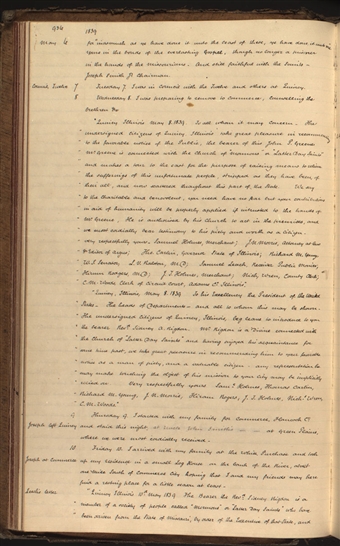 936 1839
May 6 for inasmuch as ye have done it unto the least of these, ye have done it unto
in the bonds of the everlasting Gospel, though no longer a prisoner
in the hands of the Missourians, and still faithful with the Saints —
Joseph Smith Jr. Chairman.
7 Tuesday 7. I was in Council with the Twelve and others at Quincy.
8 Wednesday 8. I was preparing to remove to Commerce, counselling the
brethren &c
"Quincy, Illinois May 8. 1839. To all whom it may concern. The
undersigned citizens of Quincy Illinois take great pleasure in recommending
to the favorable notice of the Public, the bearer of this John P. Greene
Mr Greene is connected with the Church of "Mormons" or "Latter Day Saints"
and makes a tour to the east for the purpose of raising means to relieve
the sufferings of this unfortunate people, stripped as they have been of
their all, and now scattered throughout this part of the State. We say
to the charitable and benevolent, you need have no fear but your contributions
in aid of humanity will be properly applied if entrusted to the hands of
Mr Greene. He is authorized by his Church to act in the premises, and
we most cordially bear testimony to his piety and worth as a citizen.
Very respectfully yours, Samuel Holmes, Merchant; J. N. Morris, Attorney at law
Thos. Carlin, Governor, State of Illinois; Richard M. Young,
U.S. Senator, L. V. Ralston, M.D; Samuel Leech, Receiver Public Monies;
Hiram Rogers, M.D; J. T. Holmes, Merchant; Nich. Wren, County Clerk;
C. M. Woods, Clerk of Circuit Court, Adams Co. Illinois"
"Quincy, Illinois, May 8. 1839. To his Excellency the President of the United
States, The heads of Departments and all to whom this may be shown.
The undersigned citizens of Quincy, Illinois, beg leave to introduce to you
the bearer Revd Sidney Rigdon. Mr Rigdon is a Divine connected with
the Church of Latter Day Saints and having enjoyed his acquaintance for
some time past, we take great pleasure in recommending him to your favorable
notice as a man of piety, and a valuable citizen. Any representation he
may make touching the object of his mission to your City may be implicitly
relied on. Very respectfully yours Saml Holmes, Thomas Carlin,
Richard M. Young, J. N. Morris, Hiram Rogers, J. T. Holmes, Nichs Wren,
C. M. Woods"
9 Thursday 9. I started with my family for Commerce, Hancock Co.
Joseph left Quincy and staid this night, at Green Plains,
where we were most cordially received.
10 Friday 10. I arrived with my family at the White Purchase and took
up my residence in a small Log House on the bank of the River, about
one mile South of Commerce City hoping that I and my friends may here
find a resting place for a little season at least.
"Quincy Illinois 10th May 1839. The bearer the Revd Sidney Rigdon is a
member of a society of people called "Mormons" or Latter Day Saints" who have
been driven from the State of Missouri, by order of the Executive of that State, and